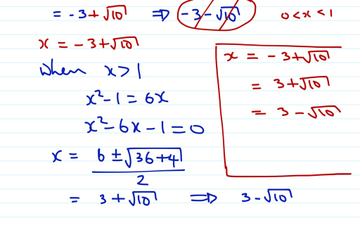 = -3+√10 ⇒ -3-√10 0<x<1
x = -3+√10
when x>1
x²-1=6x
x²-6x-1=0
x = 6±√36+4 / 2
= 3+√10 ⇒ 3-√10
x = -3+√10
= 3+√10
= 3-√10